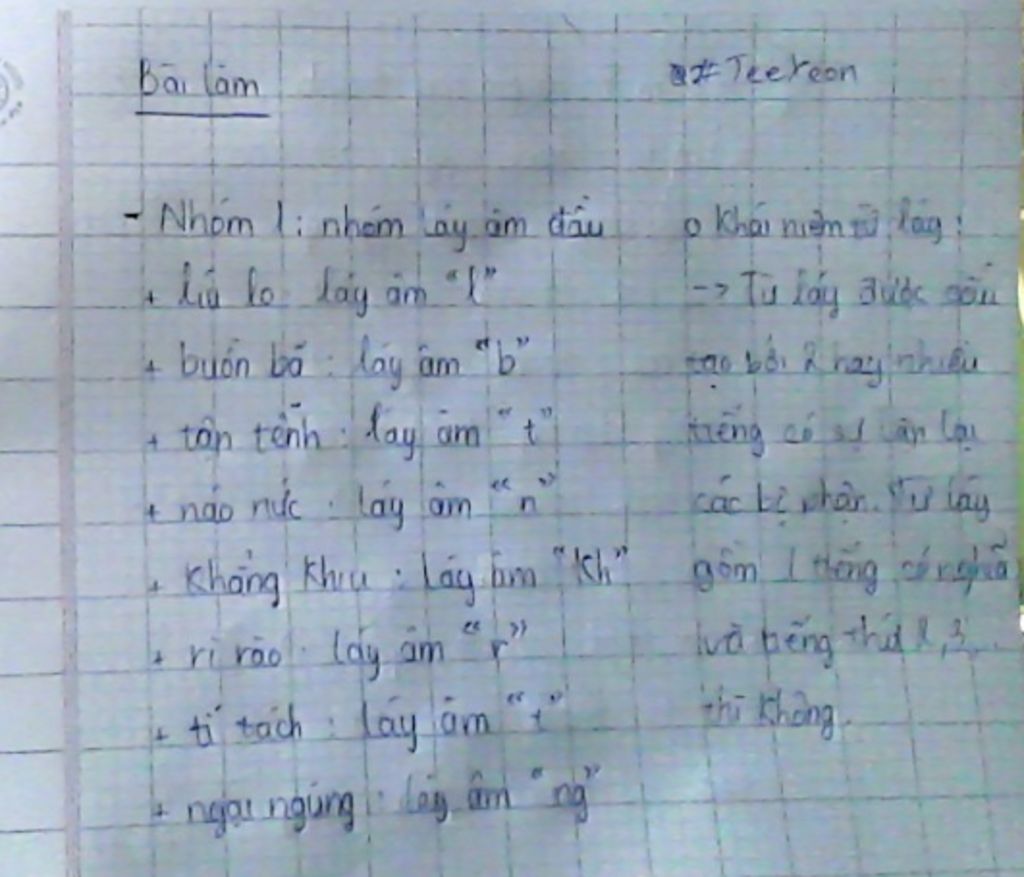 Bài làm
# Teeyeon
- Nhóm 1: nhóm láy âm đầu
+ líu lo láy âm "l"
+ buồn bã: láy âm "b"
+ tần tềnh: láy âm "t"
+ náo nức: láy âm "n"
+ Khẳng Khiu: láy âm "Kh"
+ rì rào: láy âm "r"
+ tí tách: láy âm "t"
+ ngại ngùng: láy âm "ng"
o Khái niệm từ láy:
-> Từ láy được cấu
tạo bởi 2 hay nhiều
tiếng có sự lại
các bộ phận. Từ láy
gồm 1 tiếng có nghĩa
và tiếng thứ 2, 3,...
thì Không.